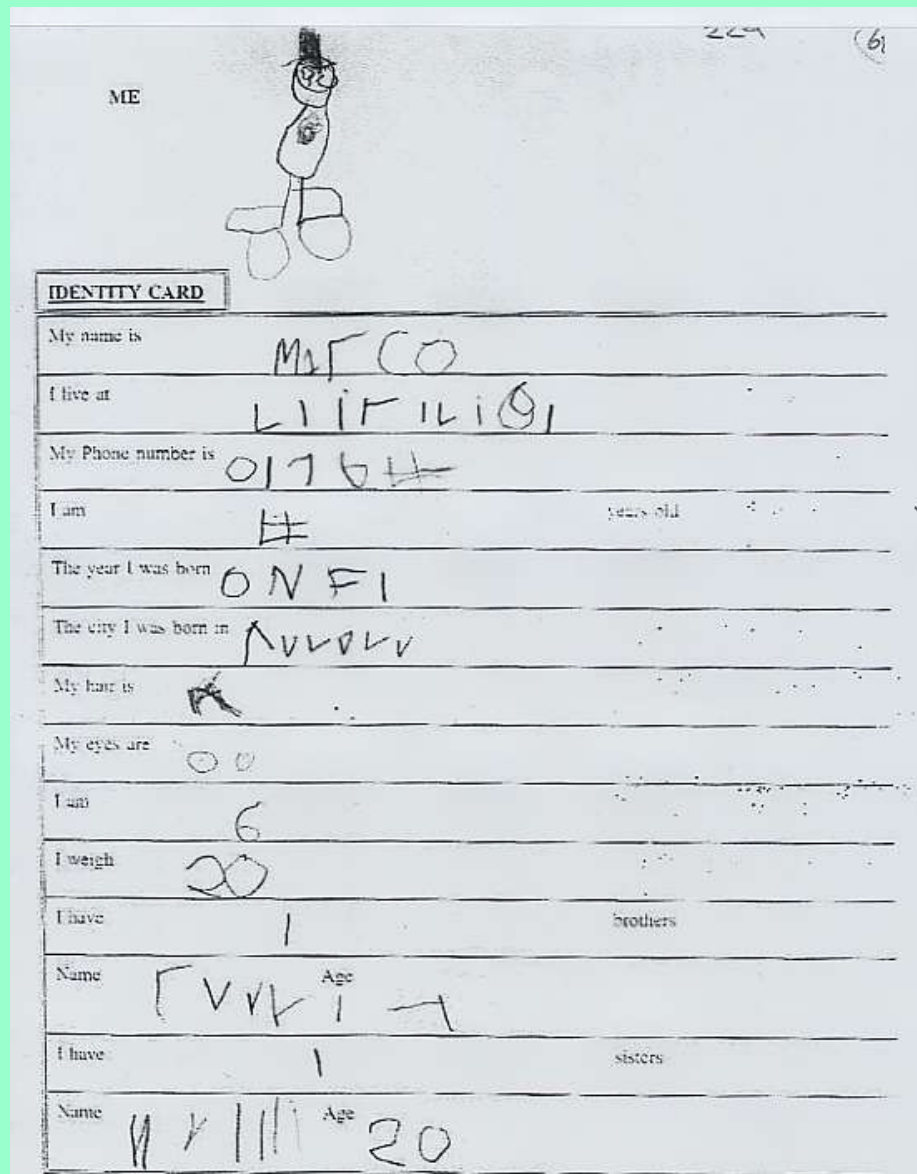 229 6
ME
IDENTITY CARD
My name is MarCO
I live at
My Phone number is 0176#
I am # years old
The year I was born ONFI
The city I was born in
My hair is
My eyes are
I am 6
I weigh 20
I have 1 brothers
Name Age
I have 1 sisters
Name Age 20